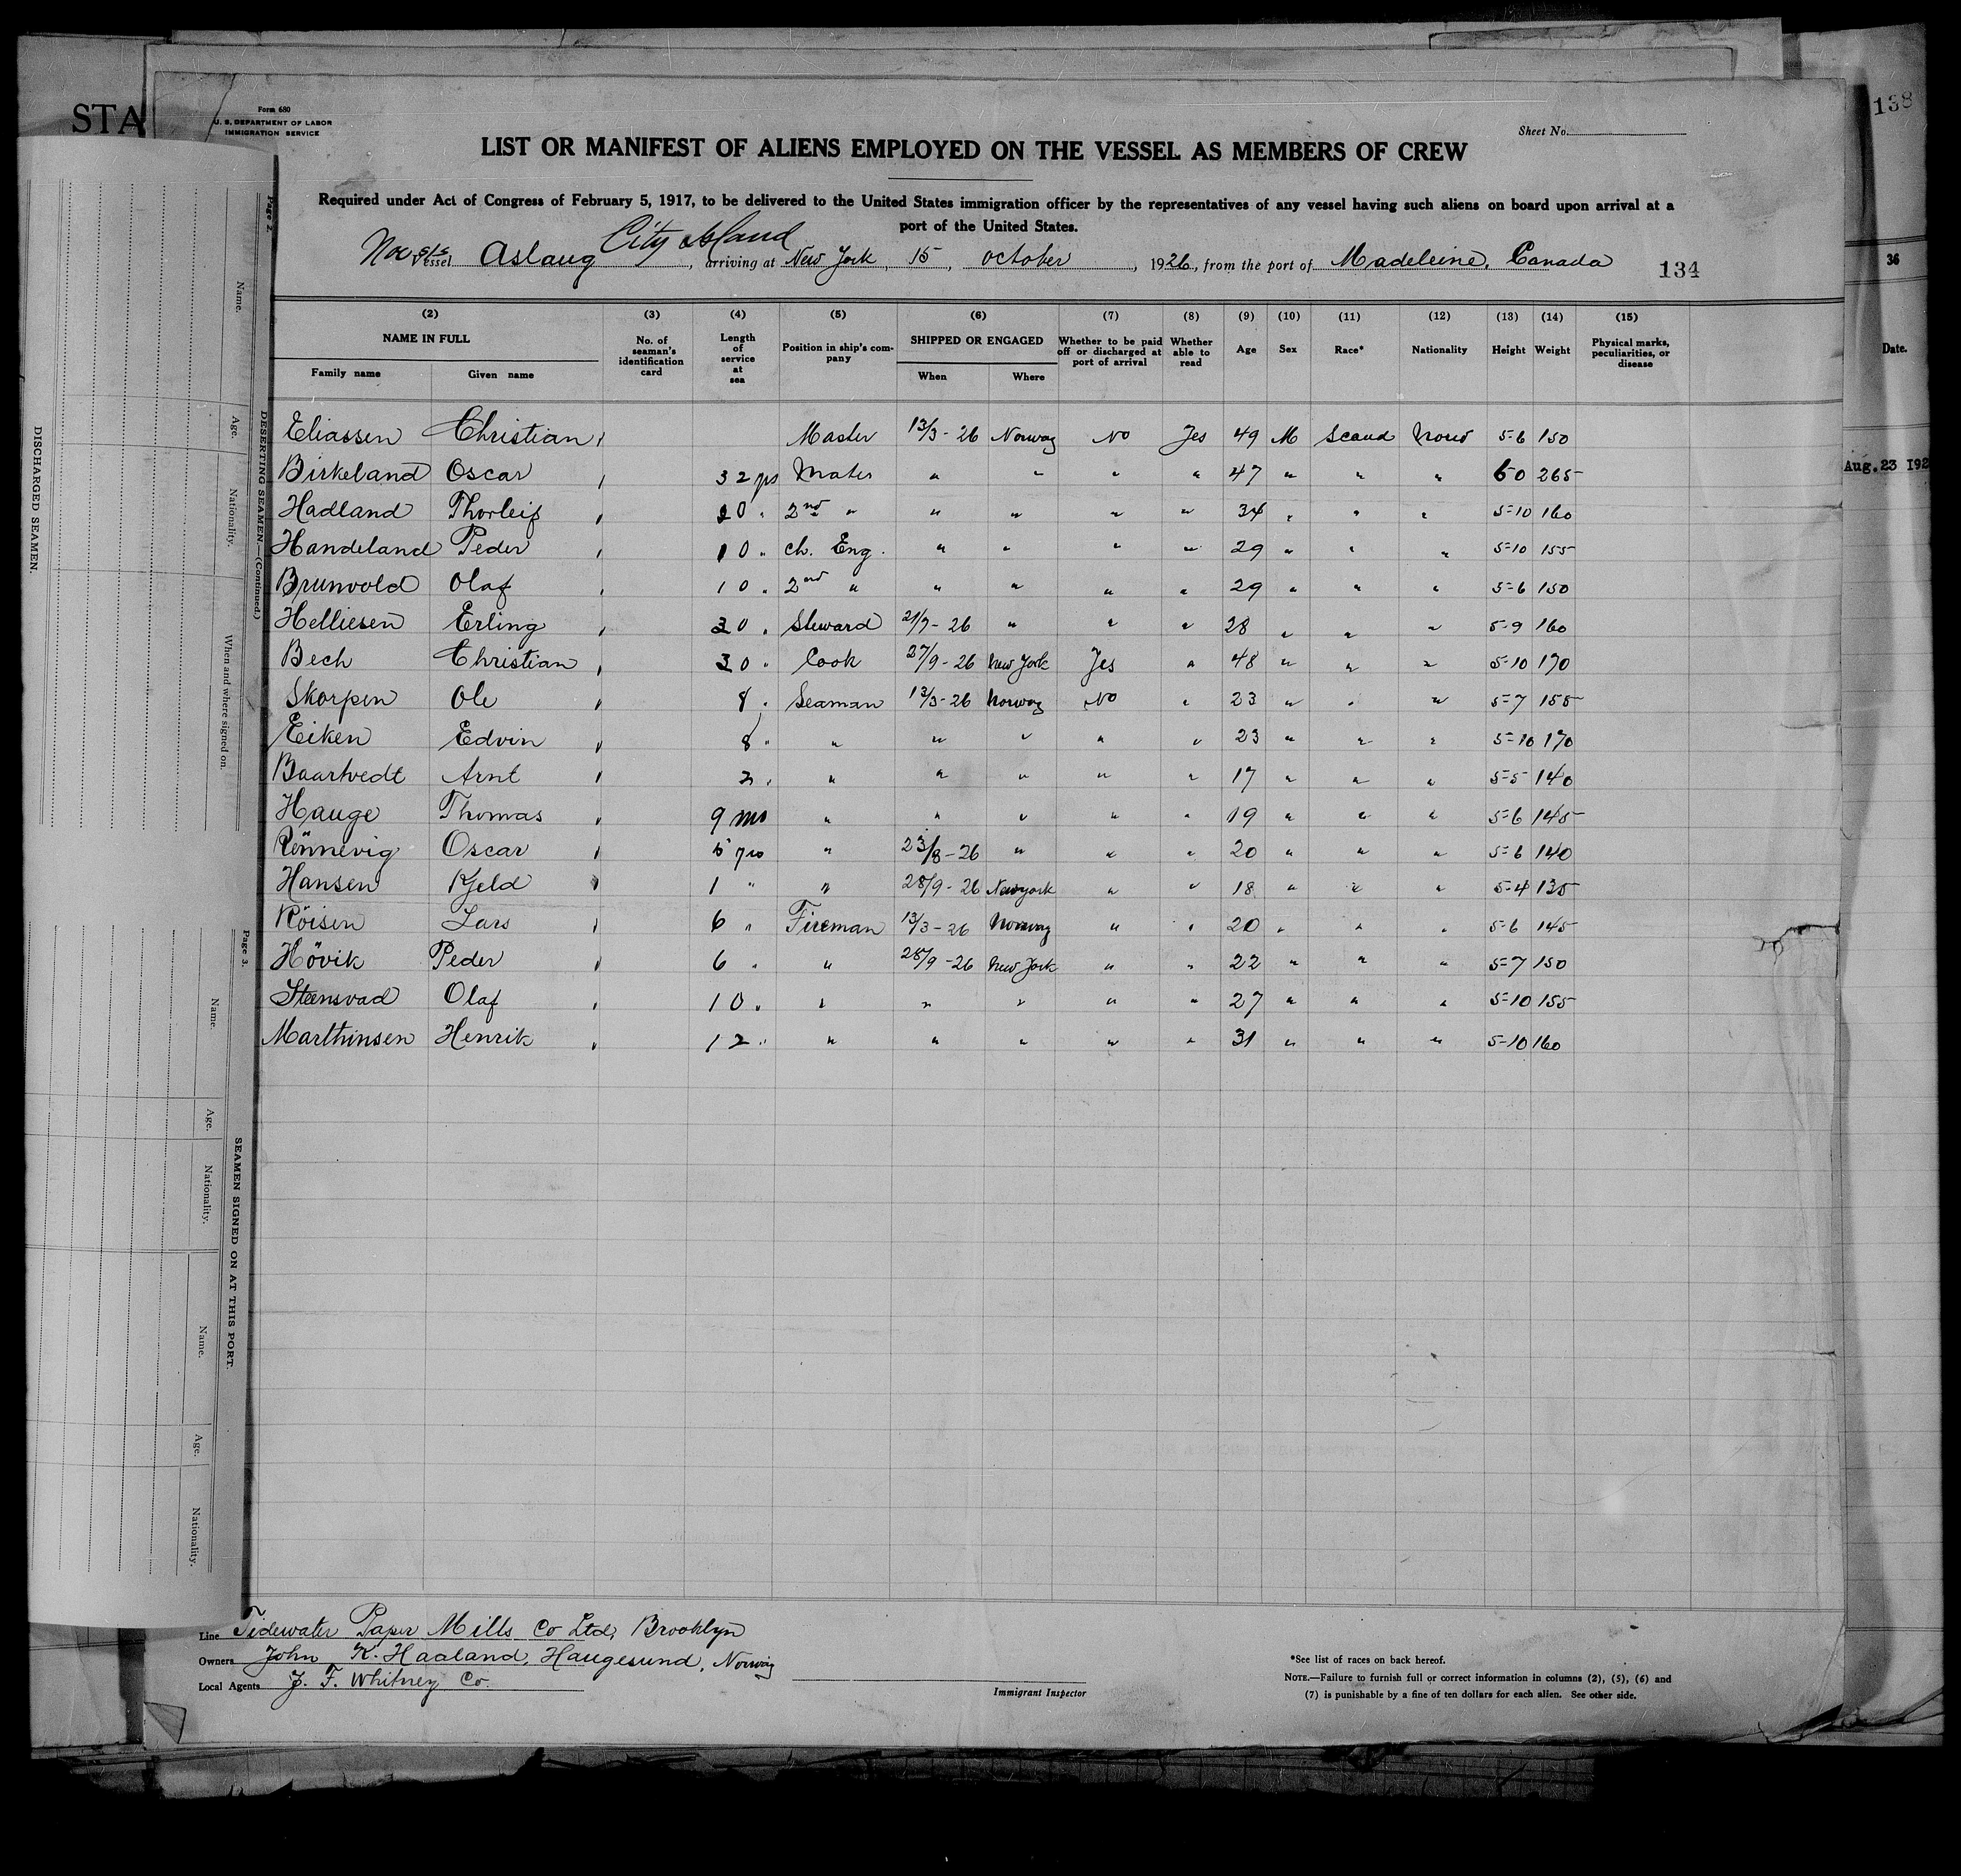 STA
138
Form 680
U. S. DEPARTMENT OF LABOR
IMMIGRATION SERVICE
Sheet No.
LIST OR MANIFEST OF ALIENS EMPLOYED ON THE VESSEL AS MEMBERS OF CREW
Required under Act of Congress of February 5, 1917, to be delivered to the United States immigration officer by the representatives of any vessel having such aliens on board upon arrival at a
port of the United States.
City Island
Vessel Aslaug, arriving at New York, 15, october, 1926, from the port of Madeleine, Canada
134
(2) (3) (4) (5) (6) (7) (8) (9) (10) (11) (12) (13) (14) (15)
NAME IN FULL
Family name Given name
No. of seaman's identification card
Length of service at sea
Position in ship's company
SHIPPED OR ENGAGED
When Where
Whether to be paid off or discharged at port of arrival
Whether able to read
Age Sex Race* Nationality Height Weight
Physical marks, peculiarities, or disease
Eliassen Christian Master 13/3-26 Norway No Yes 49 M Scand Norw 5-6 150
Birkeland Oscar 32 yrs Mater " " " " 47 " " " 6-0 265
Hadland Thorleif 20 " 2nd " " " " " 34 " " " 5-10 160
Handeland Peder 10 " ch. Eng. " " " " 29 " " " 5-10 155
Brunvold Olaf 10 " 2nd " " " " " 29 " " " 5-6 150
Helliesen Erling 30 " Steward 21/7-26 " " " 28 " " " 5-9 160
Bech Christian 30 " Cook 27/9-26 New York Yes " 48 " " " 5-10 170
Skorpen Ole 8 " Seaman 13/3-26 Norway No " 23 " " " 5-7 155
Eiken Edvin 8 " " " " " " 23 " " " 5-10 170
Baartvedt Arnt 2 " " " " " " 17 " " " 5-5 140
Hauge Thomas 9 mo " " " " " 19 " " " 5-6 145
Rönnevig Oscar 5 yrs " 23/8-26 " " " 20 " " " 5-6 140
Hansen Kjeld 1 " " 28/9-26 New york " " 18 " " " 5-4 135
Röisen Lars 6 " Fireman 13/3-26 Norway " " 20 " " " 5-6 145
Hövik Peder 6 " " 28/9-26 New York " " 22 " " " 5-7 150
Steensvad Olaf 10 " " " " " " 27 " " " 5-10 155
Marthinsen Henrik 12 " " " " " " 31 " " " 5-10 160
Line Tidewater Paper Mills Co Ltd, Brooklyn
Owners John K. Haaland, Haugesund, Norway
Local Agents J. F. Whitney Co.
Immigrant Inspector
*See list of races on back hereof.
NOTE.—Failure to furnish full or correct information in columns (2), (5), (6) and
(7) is punishable by a fine of ten dollars for each alien. See other side.
DISCHARGED SEAMEN.
Page 2
DESERTING SEAMEN.—(Continued.)
Name.
Age.
Nationality.
When and where signed on.
Page 3.
SEAMEN SIGNED ON AT THIS PORT.
Name.
Age.
Nationality.
Name.
Age.
Nationality.
36
Date.
Aug. 23 192